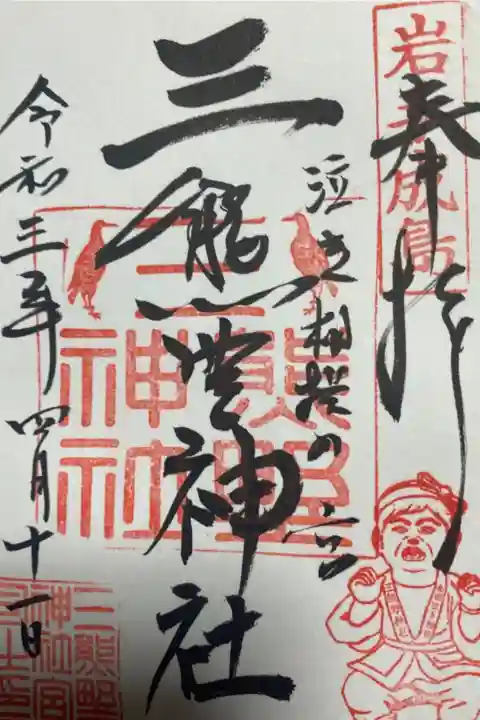 岩手成島
奉拝
泣き相撲の宮
三熊野神社
三熊野神社
令和三年四月十一日
三熊野
神社宮
司之印
三熊野神社